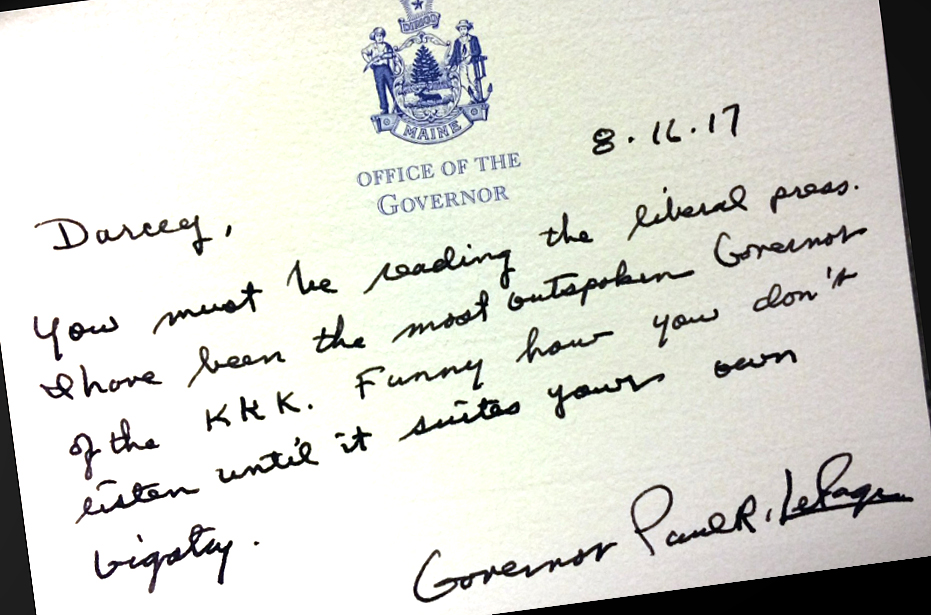 DIRIGO
MAINE
OFFICE OF THE
GOVERNOR
8.16.17
Darcey,
You must be reading the liberal press.
I have been the most outspoken Governor
of the KKK. Funny how you don't
listen until it suites yours own
bigotry.
Governor Paul R. LePage